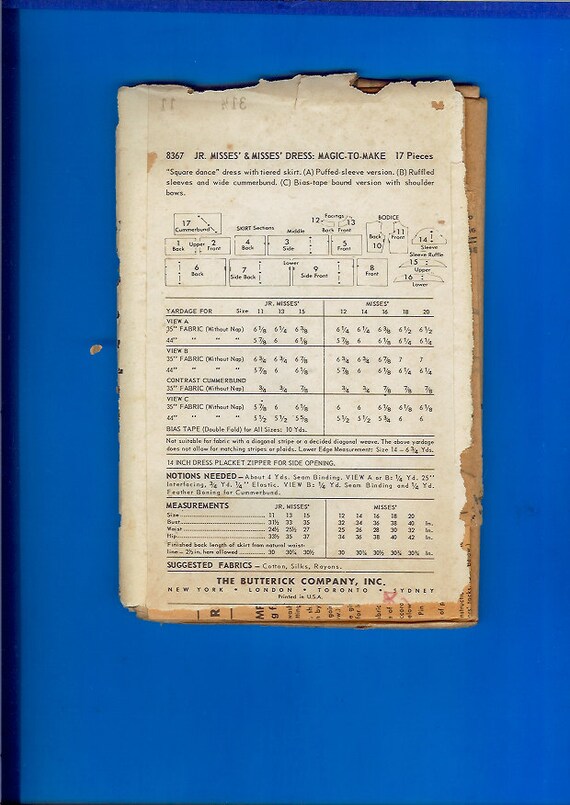 8367 JR. MISSES' & MISSES' DRESS: MAGIC-TO-MAKE 17 Pieces
"Square dance" dress with tiered skirt. (A) Puffed-sleeve version. (B) Ruffled
sleeves and wide cummerbund. (C) Bias-tape bound version with shoulder
bows.
17 Cummerbund
SKIRT Sections
Facings
12 Back 13 Front
BODICE
Back 10
11 Front
14 Sleeve
1 Back Upper 2 Front
4 Back Middle 3 Side 5 Front
Sleeve Ruffle
15 Upper
16 Lower
Lower
6 Back 7 Side Back 9 Side Front 8 Front
JR. MISSES' MISSES'
YARDAGE FOR Size 11 13 15 12 14 16 18 20
VIEW A
35" FABRIC (Without Nap) 6 1/8 6 1/4 6 3/8 6 1/4 6 1/4 6 3/8 6 1/2 6 1/2
44" " " " 5 7/8 6 6 1/8 5 7/8 6 6 1/8 6 1/4 6 1/4
VIEW B
35" FABRIC (Without Nap) 6 3/8 6 3/4 6 7/8 6 3/4 6 3/4 6 7/8 7 7
44" " " " 5 7/8 6 6 1/8 5 7/8 6 6 1/8 6 1/4 6 1/4
CONTRAST CUMMERBUND
35" FABRIC (Without Nap) 3/4 3/4 7/8 3/4 3/4 7/8 7/8 7/8
VIEW C
35" FABRIC (Without Nap) 5 7/8 6 6 1/8 6 6 6 1/8 6 1/8 6 1/8
44" " " " 5 1/2 5 1/2 5 5/8 5 1/2 5 1/2 5 3/4 6 6
BIAS TAPE (Double Fold) for All Sizes: 10 Yds.
Not suitable for fabric with a diagonal stripe or a decided diagonal weave. The above yardage
does not allow for matching stripes or plaids. Lower Edge Measurement: Size 14 - 6 3/4 Yds.
14 INCH DRESS PLACKET ZIPPER FOR SIDE OPENING.
NOTIONS NEEDED—About 4 Yds. Seam Binding. VIEW A or B: 1/4 Yd. 25"
Interfacing, 3/4 Yd. 1/4" Elastic. VIEW B: 1/4 Yd. Seam Binding and 1/4 Yd.
Feather Boning for Cummerbund.
MEASUREMENTS JR. MISSES' MISSES'
Size 11 13 15 12 14 16 18 20
Bust 31½ 33 35 32 34 36 38 40 In.
Waist 24½ 25½ 27 25 26 28 30 32 In.
Hip 33½ 35 37 34 36 38 40 42 In.
Finished back length of skirt from natural waist-
line — 2½ in. hem allowed 30 30¼ 30½ 30 30¼ 30½ 30¾ 30¾ In.
SUGGESTED FABRICS — Cotton, Silks, Rayons.
THE BUTTERICK COMPANY, INC.
NEW YORK • LONDON • TORONTO • SYDNEY
Printed in U.S.A.